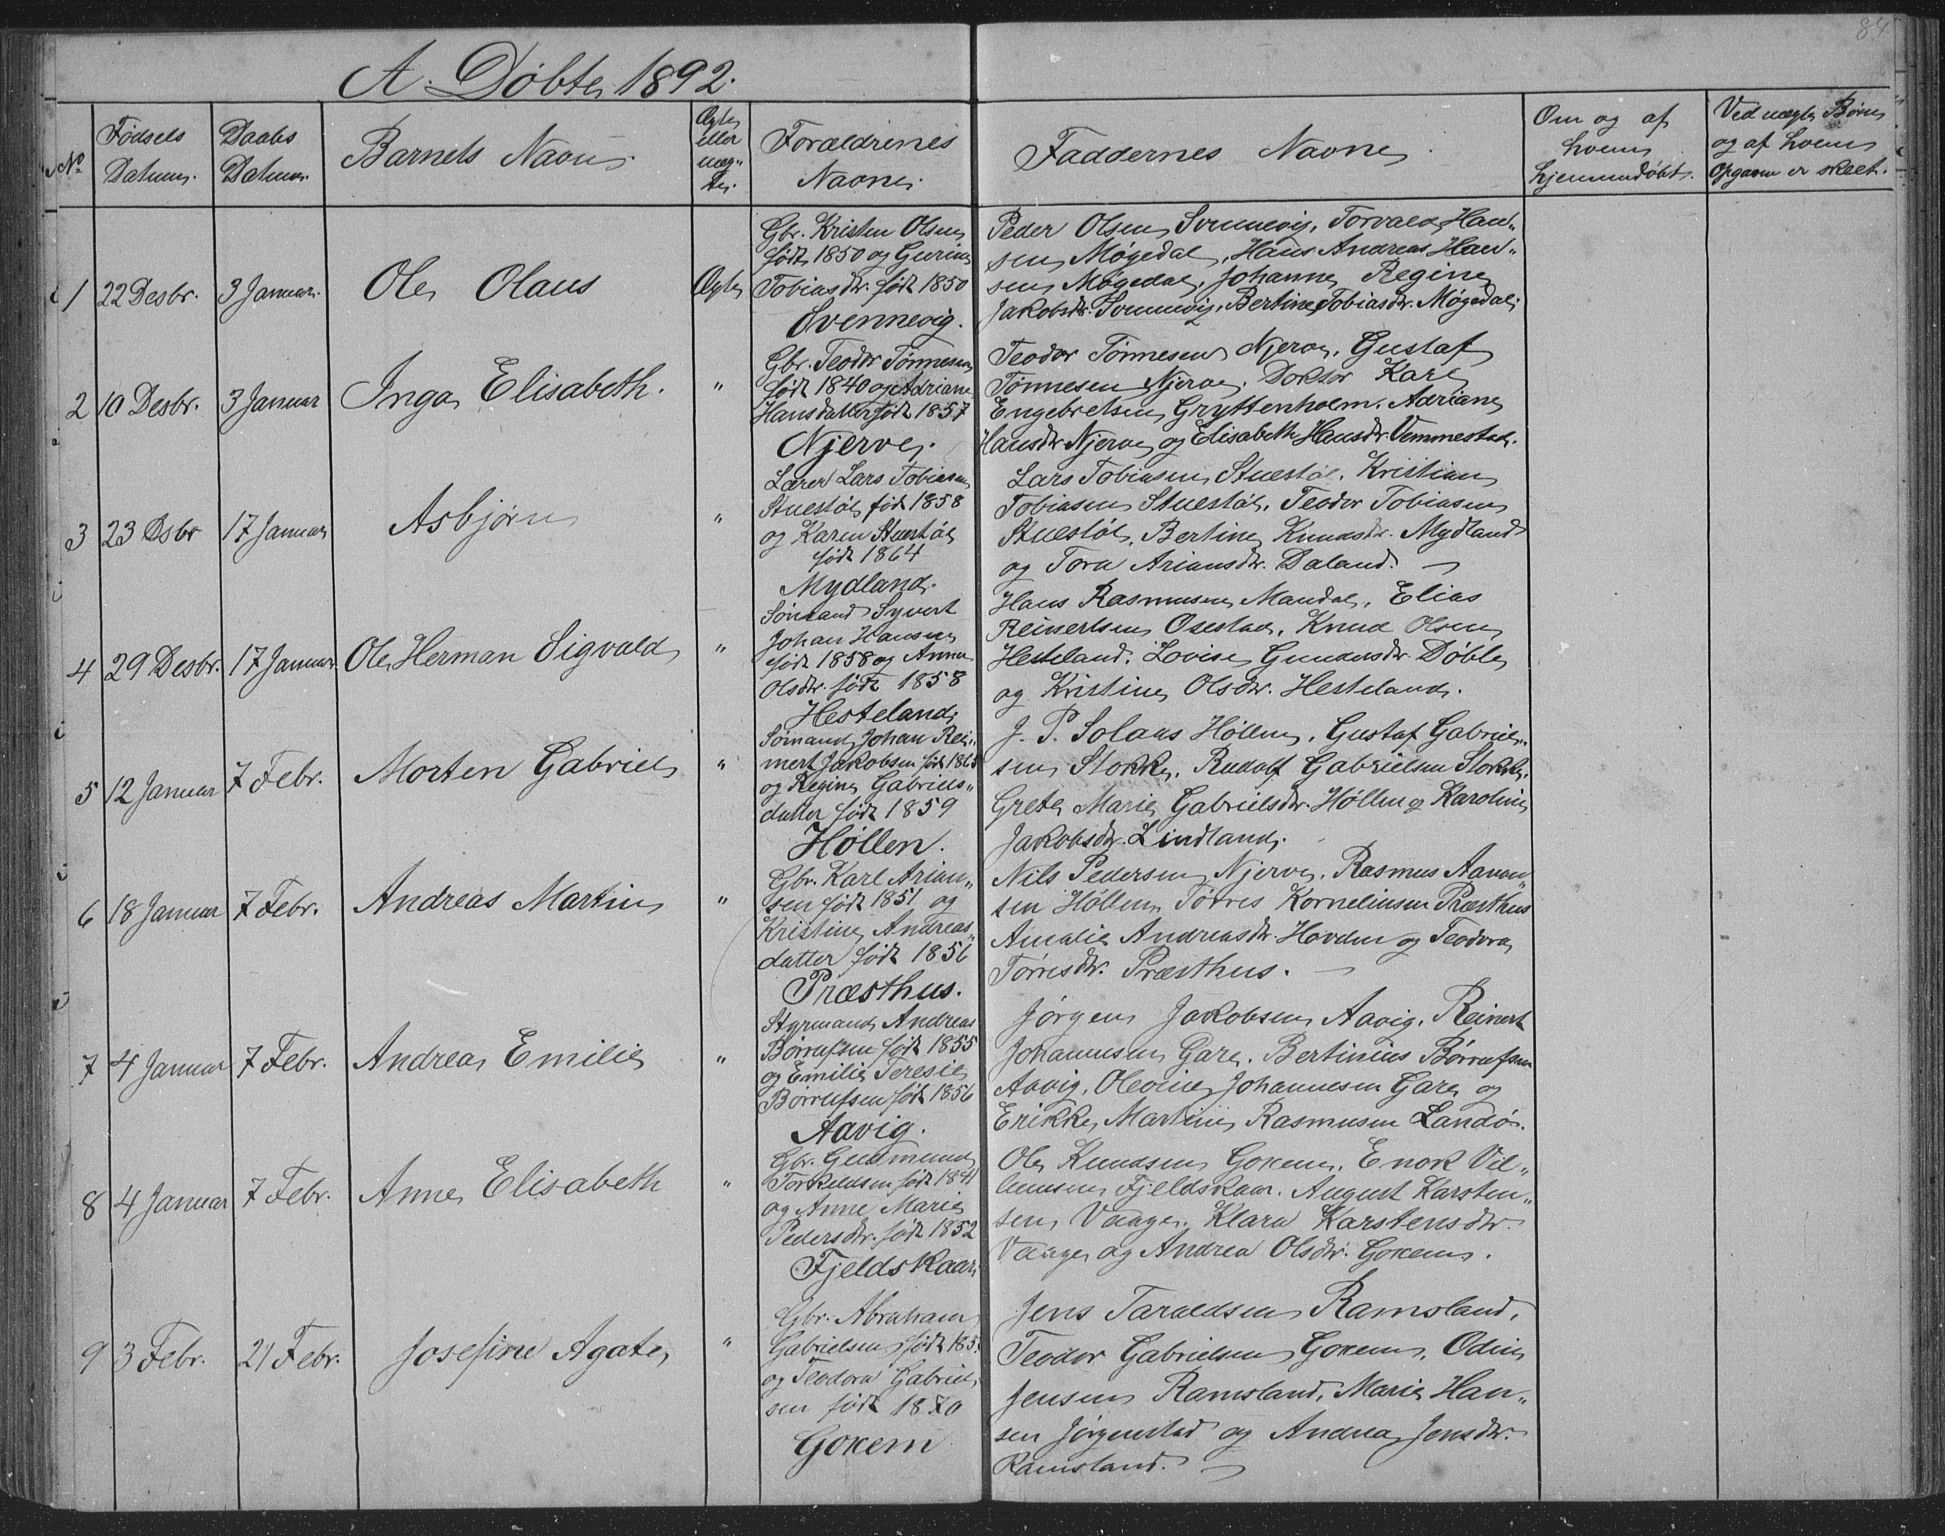 84
A. Døbte 1892.
No.
Fødsels Datum.
Daabs Datum.
Barnets Navn.
Ægte eller uæg- te.
Forældrenes Navne.
Faddernes Navne.
Om og af hvem hjemmedøbt.
Ved uægte Børn og af hvem Opgaven er skeet.
1 22 Desbr. 3 Januar. Ole Olaus Ægte
Gbr. Kristen Olsen
født 1850 og Gurine
Tobiasdtr. født 1850
Svennevig.
Peder Olsen Svennevig, Torvald Han-
sen Møgedal, Hans Andreas Han-
sen Møgedal, Johanne Regine
Jakobsdtr. Svennevig, Bertine Tobiasdtr. Møgedal.
2 10 Desbr. 3 Januar Inga Elisabeth. "
Gbr. Teodor Tønnesen
født 1840 og Adriane
Hansdatter født 1857
Njerve.
Teodor Tønnesen Njerve, Gustaf
Tønnesen Njerve, Doktor Karl
Engebretsen Gryttenholm, Adriane
Hansdtr Njerve og Elisabeth Hansdtr. Vemmestad.
3 23 Dsbr 17 Januar Asbjørn "
Lærer Lars Tobiasen
Stuestøl født 1858
og Karen Stuestøl
født 1864
Mydland.
Lars Tobiasen Stuestøl, Kristian
Tobiasen Stuestøl, Teodor Tobiasen
Stuestøl, Bertine Knudsdtr. Mydland
og Tora Ariansdtr. Daland.
4 29 Desbr. 17 Januar Ole Herman Sigvald "
Sømand Syvert
Johan Hansen
født 1858 og Anna
Olsdtr. født 1858
Hesteland.
Hans Rasmusen Mandal, Elias
Reinertsen Osestad, Knud Olsen
Hesteland, Lovise Gundersdtr. Døble
og Kristine Olsdtr. Hesteland.
5 12 Januar 7 Febr. Morten Gabriel "
Sømand Johan Rei-
nert Jakobsen født 1865
og Regine Gabriels-
datter født 1859
Høllen.
J. P. Solaas Høllen, Gustaf Gabriel-
sen Stokke, Rudolf Gabrielsen Stokke,
Grete Marie Gabrielsdtr. Høllen og Karoline
Jakobsdtr. Lindland.
6 18 Januar 7 Febr. Andreas Martin "
Gbr. Karl Arian-
sen født 1851 og
Kristine Andreas-
datter født 1856
Præsthus.
Nils Pedersen Njerve, Rasmus Aanon-
sen Høllen, Tørres Kornelinsen Præsthus
Amalie Andreasdtr. Hovden og Teodora
Tørresdtr. Præsthus.
7 4 Januar 7 Febr. Andrea Emilie "
Styrmand Andreas
Børrufsen født 1855
og Emilie Teresie
Børrufsen født 1856
Aavig.
Jørgen Jakobsen Aavig, Reinert
Johannesen Gare, Bertinius Børrufsen
Aavig, Olevine Johannesen Gare og
Erikke Martine Rasmusen Landø.
8 4 Januar 7 Febr. Anne Elisabeth "
Gbr. Gudmund
Torkildsen født 1841
og Anne Marie
Pedersdtr. født 1852
Fjeldskaar
Ole Knudsen Goksem, Enok Vil-
lumsen Fjeldskaar, August Karsten-
sen Vaage, Klara Karstensdtr.
Vaage og Andrea Olsdtr. Goksem.
9 3 Febr. 21 Febr. Josefine Agate "
Gbr. Abraham
Gabrielsen født 185
og Teodora Gabriel
sen født 1870
Goksem
Jens Taraldsen Ramsland,
Teodor Gabrielsen Goksem, Odin
Jensen Ramsland, Marie Han-
sen Jørgenstad og Andrea Jensdtr.
Ramsland.